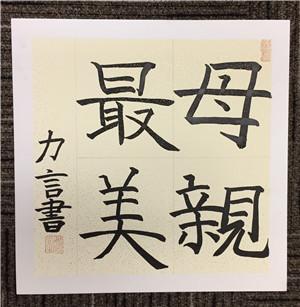 母親
最美
力言書